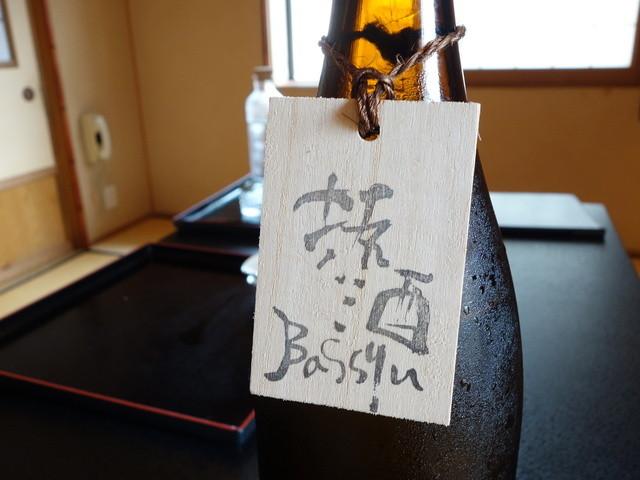 酒
Bassyu